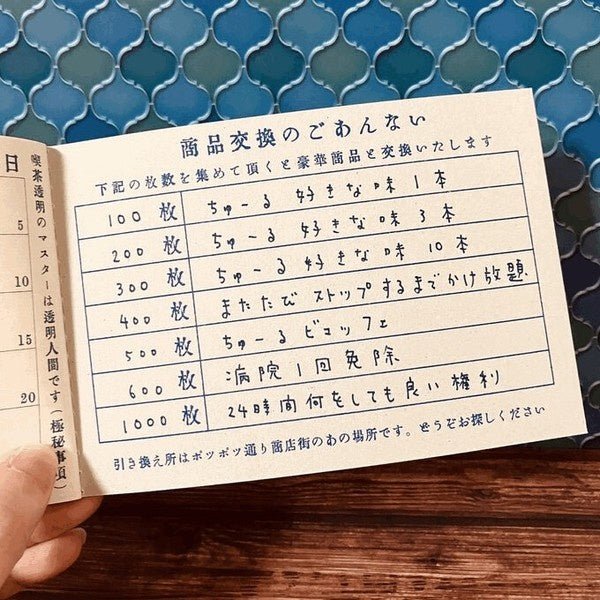 商品交換のごあんない
下記の枚数を集めて頂くと豪華商品と交換いたします
100 枚 ちゅーる 好きな味 1本
200 枚 ちゅーる 好きな味 3本
300 枚 ちゅーる 好きな味 10本
400 枚 またたび ストップするまでかけ放題
500 枚 ちゅーる ビュッフェ
600 枚 病院1回免除
1000 枚 24時間何をしても良い権利
引き換え所はポツポツ通り商店街のあの場所です。どうぞお探しください
喫茶透明のマスターは透明人間です(極秘事項)
日
5
10
15
20